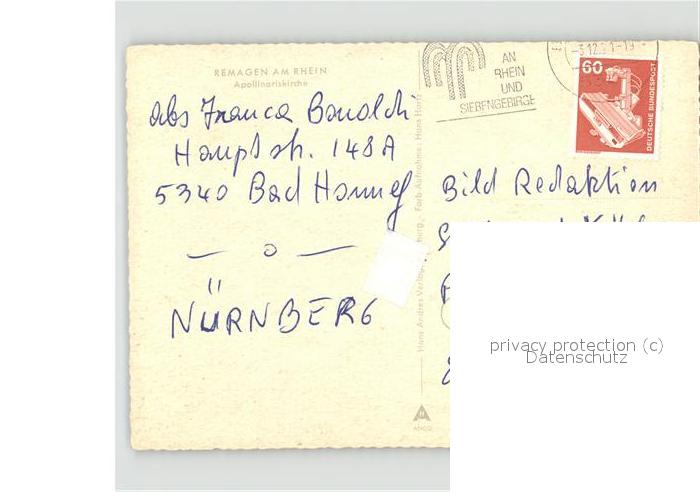 REMAGEN AM RHEIN
Apollinariskirche
abs Franca Bonoldi
Hauptstr. 148A
5340 Bad Honnef
— o —
NÜRNBERG
AN
RHEIN
UND
SIEBENGEBIRGE
-3.12.81-19
60
DEUTSCHE BUNDESPOST
Bild Redaktion
Hans Andres Verlag
Farb. Aufnahme: Hans
privacy protection (c)
Datenschutz